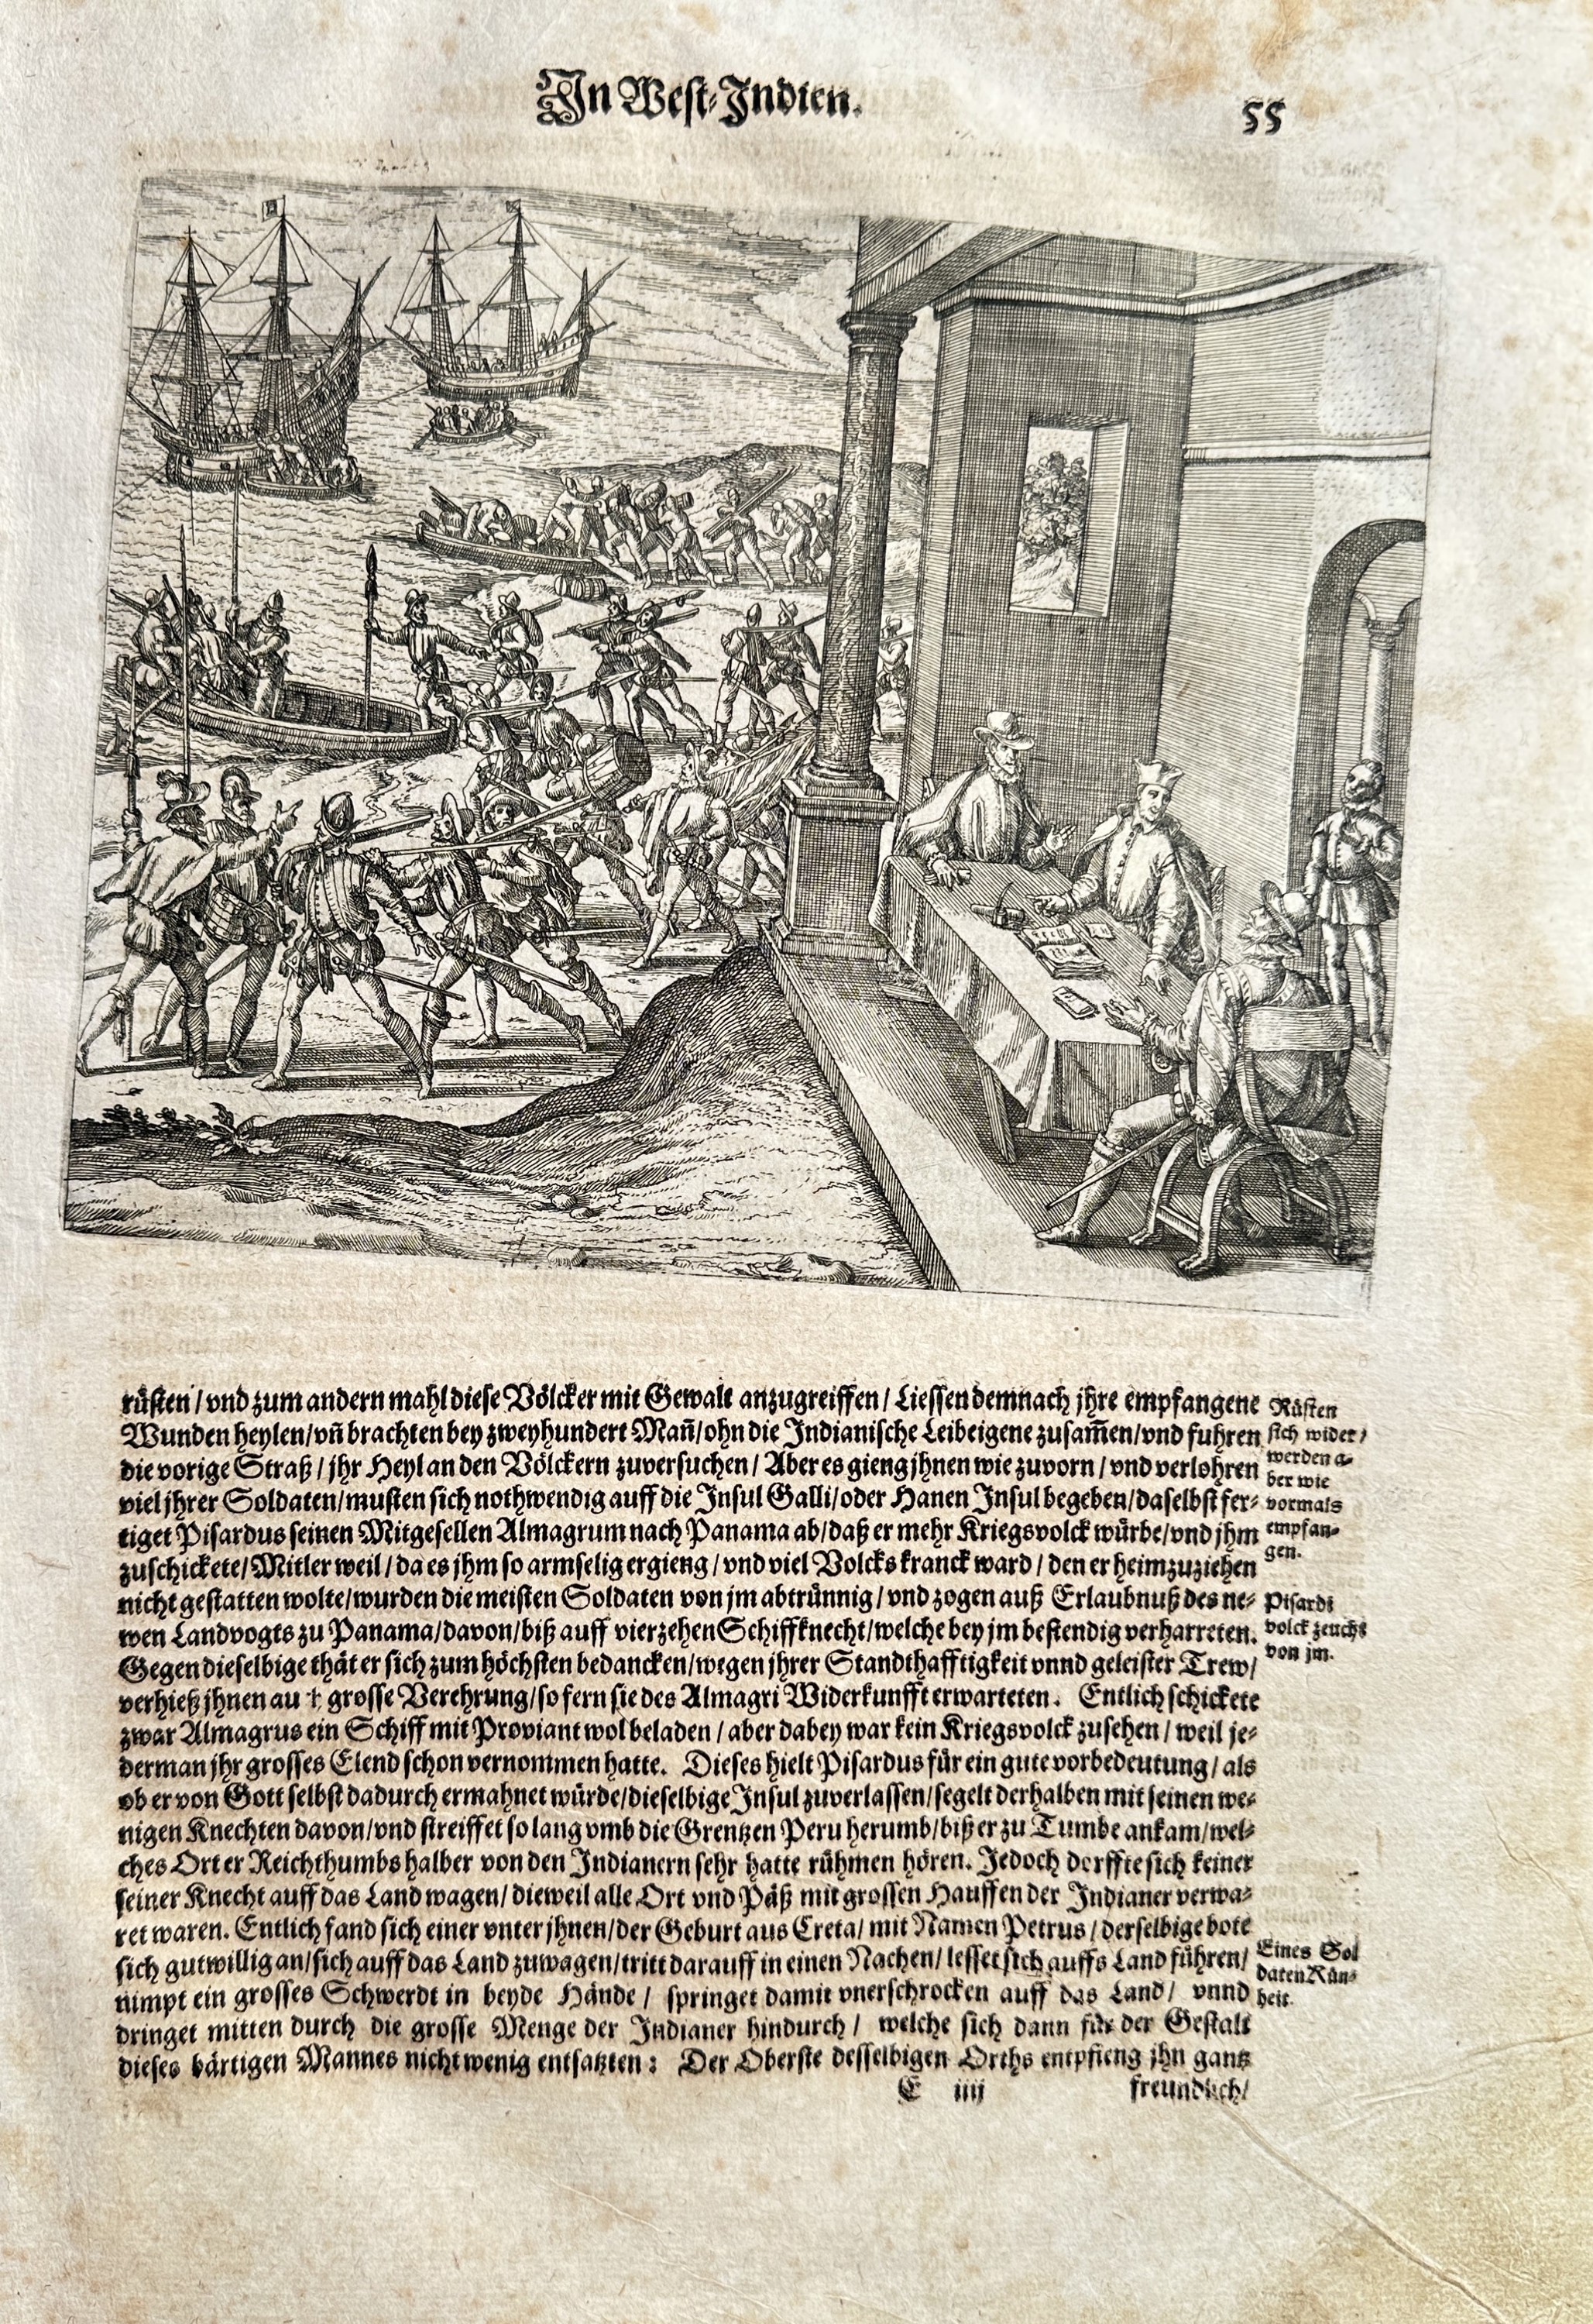 In West-Indien.
55
rüsten / vnd zum andern mahl diese Völcker mit Gewalt anzugreiffen / Liessen demnach jhre empfangene
Wunden heylen / vñ brachten bey zweyhundert Mañ / ohn die Indianische Leibeigene zusam̄en / vnd fuhren
die vorige Straß / jhr Heyl an den Völckern zuversuchen / Aber es gieng jhnen wie zuvorn / vnd verlohren
viel jhrer Soldaten / musten sich nothwendig auff die Insul Galli / oder Hanen Insul begeben / daselbst fer-
tiget Pisardus seinen Mitgesellen Almagrum nach Panama ab / daß er mehr Kriegsvolck würbe / vnd jhm
zuschickete / Mitler weil / da es jhm so armselig ergieng / vnd viel Volcks kranck ward / den er heimzuziehen
nicht gestatten wolte / wurden die meisten Soldaten von jm abtrünnig / vnd zogen auß Erlaubnuß des ne-
wen Landvogts zu Panama / davon / biß auff vierzehen Schiffknecht / welche bey jm bestendig verharreten.
Gegen dieselbige thät er sich zum höchsten bedancken / wegen jhrer Standthafftigkeit vnnd geleister Trew /
verhieß jhnen auch grosse Verehrung / so fern sie des Almagri Widerkunfft erwarteten. Entlich schickete
zwar Almagrus ein Schiff mit Proviant wol beladen / aber dabey war kein Kriegsvolck zusehen / weil je-
derman jhr grosses Elend schon vernommen hatte. Dieses hielt Pisardus für ein gute vorbedeutung / als
ob er von Gott selbst dadurch ermahnet würde / dieselbige Insul zuverlassen / segelt derhalben mit seinen we-
nigen Knechten davon / vnd streiffet so lang vmb die Grentzen Peru herumb / biß er zu Tumbe ankam / wel-
ches Ort er Reichthumbs halber von den Indianern sehr hatte rühmen hören. Jedoch dorffte sich keiner
seiner Knecht auff das Land wagen / dieweil alle Ort vnd Päß mit grossen Hauffen der Indianer verwa-
ret waren. Entlich fand sich einer vnter jhnen / der Geburt aus Creta / mit Namen Petrus / derselbige bote
sich gutwillig an / sich auff das Land zuwagen / tritt darauff in einen Nachen / lesset sich auffs Land führen /
nimpt ein grosses Schwerdt in beyde Hände / springet damit vnerschrocken auff das Land / vnnd
dringet mitten durch die grosse Menge der Indianer hindurch / welche sich dann für der Gestalt
dieses bärtigen Mannes nicht wenig entsatzten : Der Oberste desselbigen Orths entpfieng jhn gantz
E iiij
freundlich /
Rüsten
sich wider /
werden a-
ber wie
vormals
empfan-
gen.
Pisardi
volck zeucht
von jm.
Eines Sol
daten Kün-
heit.